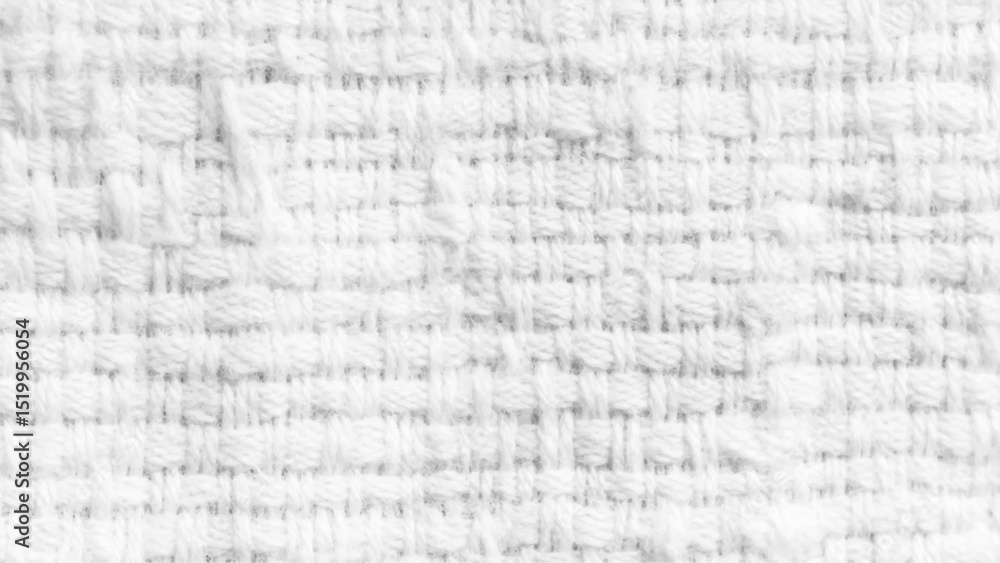 Adobe Stock | #1519956054